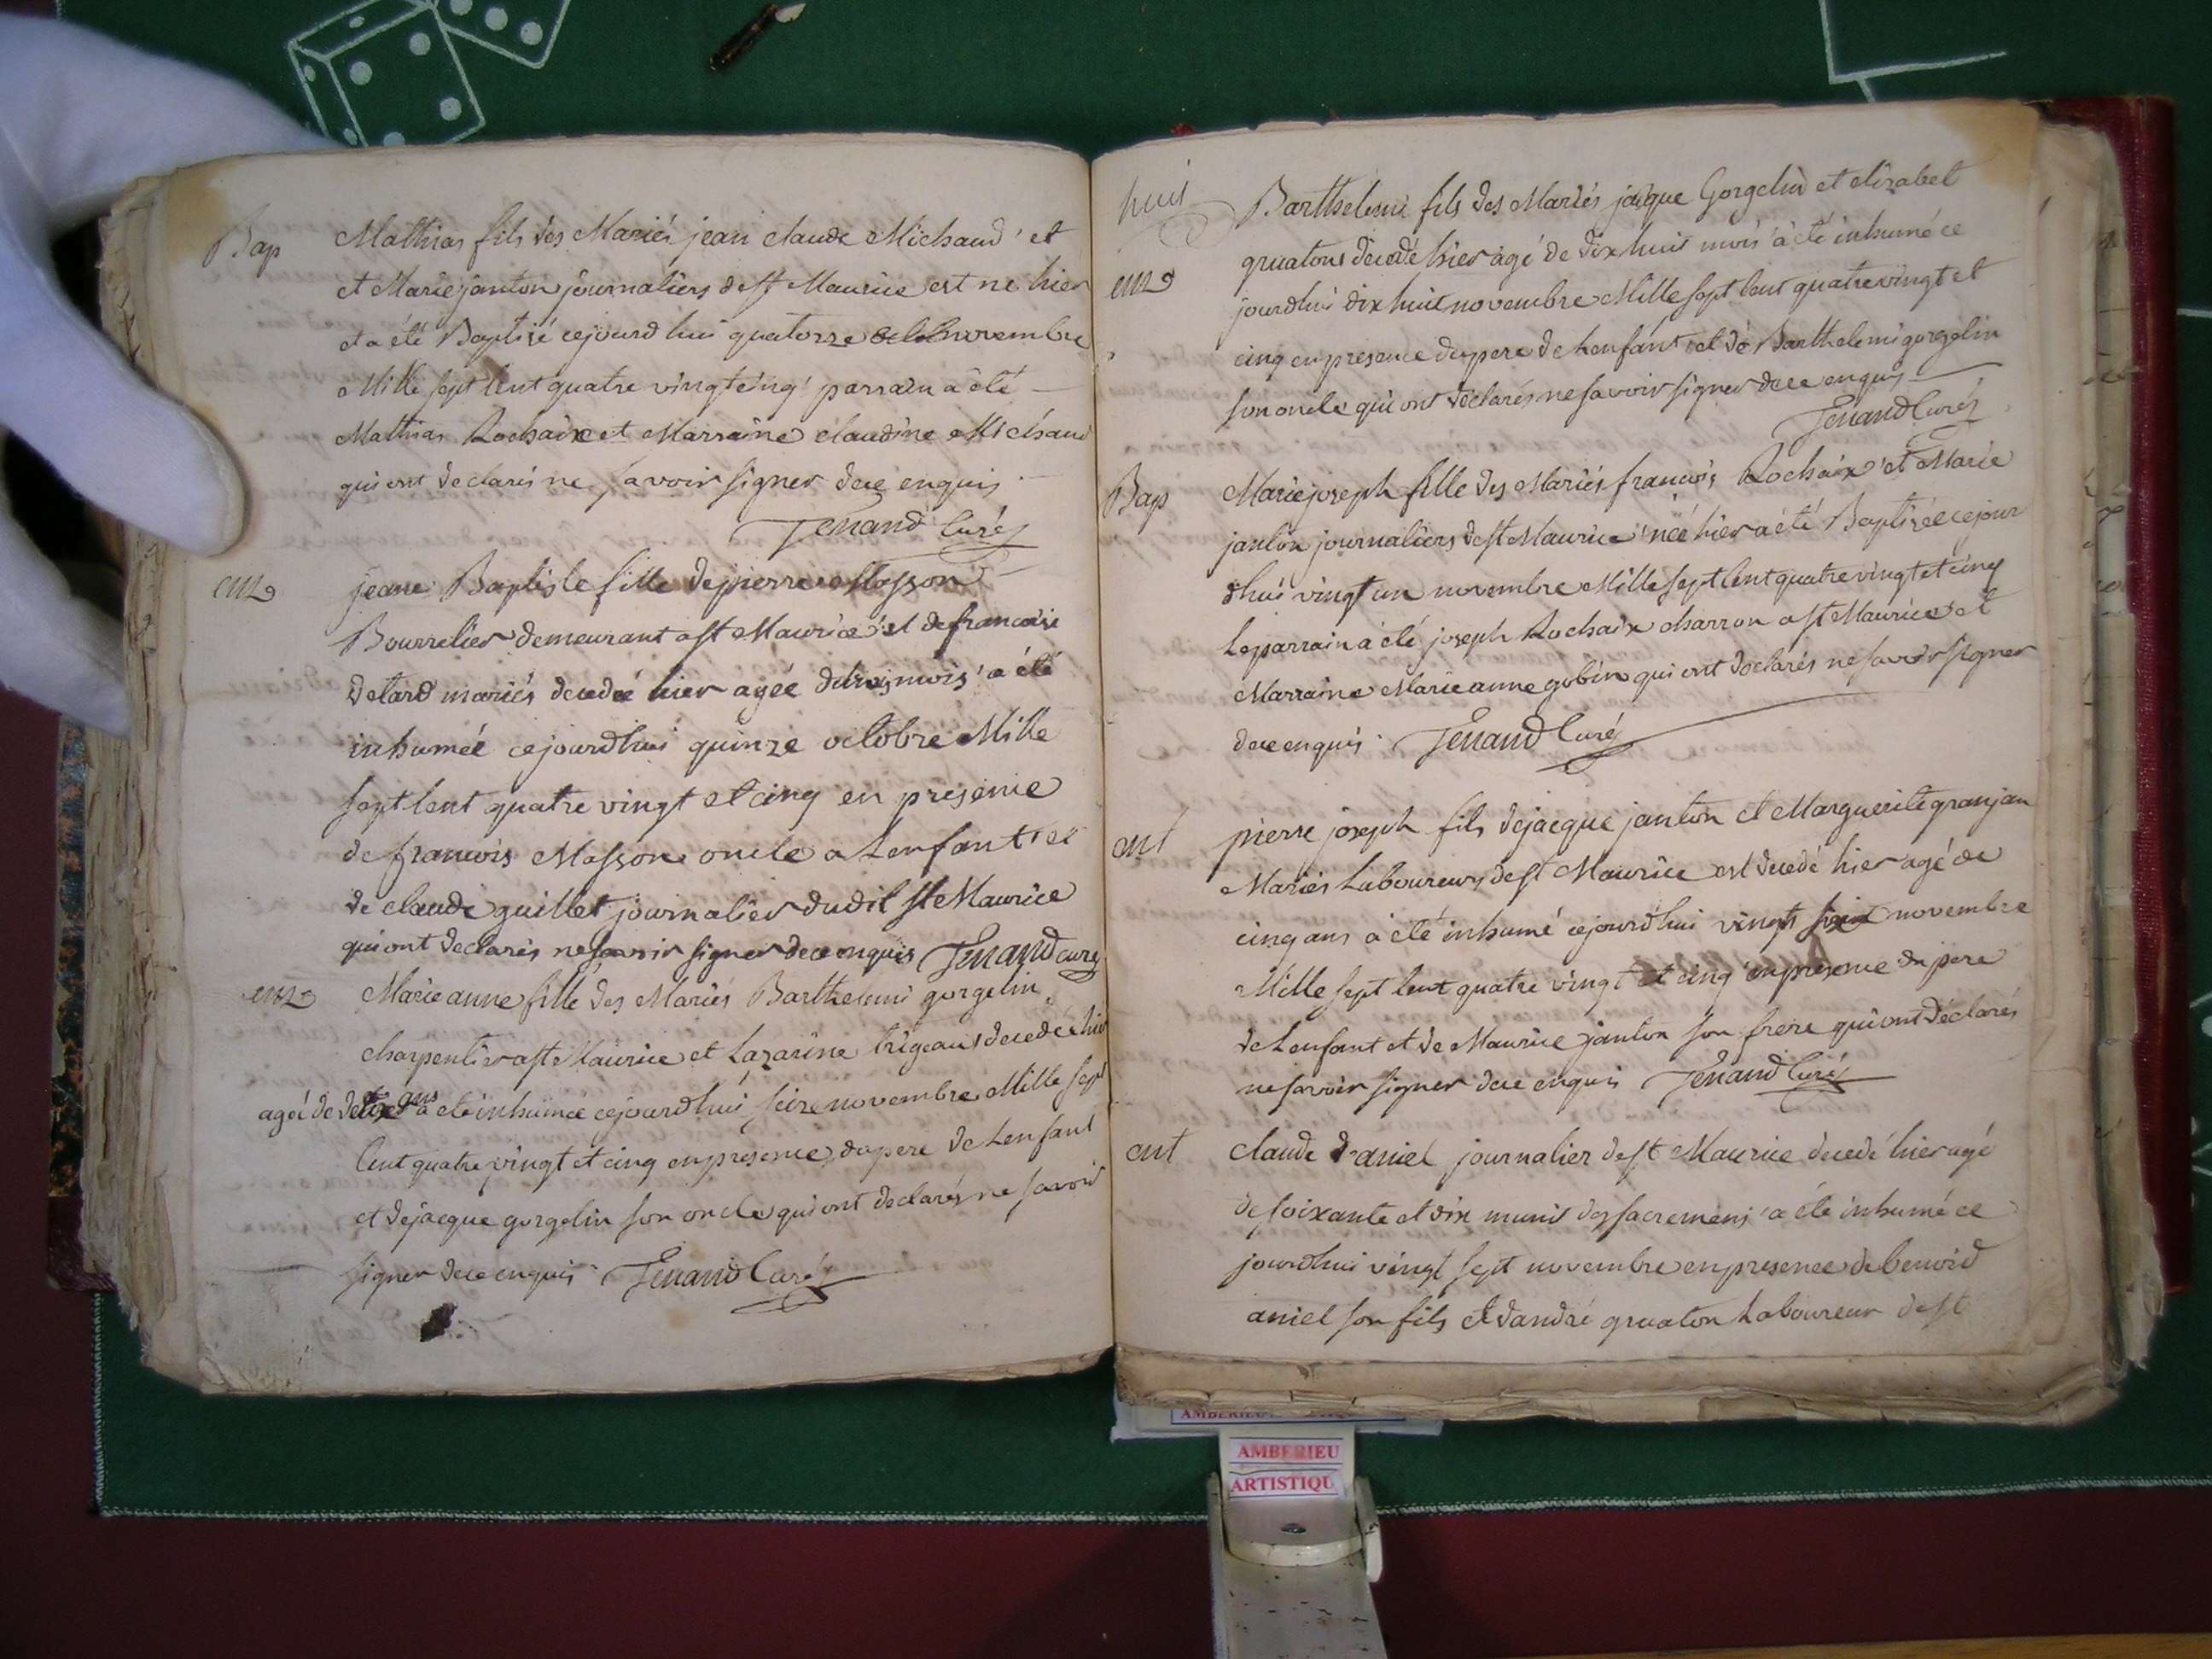 Bap
Mathias fils des Mariés jean claude Michaud et
et Marie janton journaliers de st Maurice est né hier
et a été Baptisé cejourdhui quatorze novembre
Mille sept Cent quatre vingt cinq parrain a été
Mathias Rochaix et Marraine claudine Michaud
qui ont declarés ne savoir signer de ce enquis
Tenand Curé
em
jeane Baptiste fille de pierre Masson
Bourrelier demeurant a st Maurice et de francoise
detard mariés decedée hier agée de mois a été
inhumée cejourdhui quinze octobre Mille
sept Cent quatre vingt et cinq en presence
de francois Masson oncle a Lenfant et
de claude guillet journalier dudit st Maurice
qui ont declarés ne savoir signer de ce enquis Tenand curé
em
Marie anne fille des Mariés Barthelemi gorgelin
charpentier a st Maurice et Lazarine trigeau decedée hier
agée de deux ans a été inhumée cejourdhui seize novembre Mille sept
Cent quatre vingt et cinq en presence du pere de Lenfant
et de jacque gorgelin son oncle qui ont declarés ne savoir
signer de ce enquis Tenand Curé
huit
Barthelemi fils des Mariés jacque Gorgelin et elizabet
gruaton decedé hier agé de dix huit mois a été inhumé ce
em
jourdhui dix huit novembre Mille sept Cent quatre vingt et
cinq en presence du pere de Lenfant et de Barthelemi gorgelin
son oncle qui ont declarés ne savoir signer de ce enquis
Tenand Curé
Bap
Marie joseph fille des Mariés francois Rochaix et Marie
janton journaliers de st Maurice née hier a été Baptisée cejour
dhui vingt un novembre Mille sept Cent quatre vingt et cinq
Le parrain a été joseph Rochaix charron a st Maurice et
Marraine Marie anne gobin qui ont declarés ne savoir signer
de ce enquis Tenand Curé
ent
pierre joseph fils de jacque janton et Marguerite granjan
Mariés Laboureurs de st Maurice est decedé hier agé de
cinq ans a été inhumé cejourdhui vingt novembre
Mille sept Cent quatre vingt et cinq en presence du pere
de Lenfant et de Maurice janton son frere qui ont declarés
ne savoir signer de ce enquis Tenand Curé
ent
claude daniel journalier de st Maurice decedé hier agé
de soixante et dix munit des sacremens a été inhumé ce
jourdhui vingt sept novembre en presence de benoid
aniel son fils et dandré gruaton Laboureur de st
AMBERIEU
ARTISTIQU